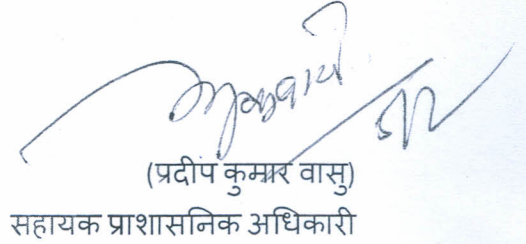 (प्रदीप कुमार वासु)
सहायक प्राशासनिक अधिकारी